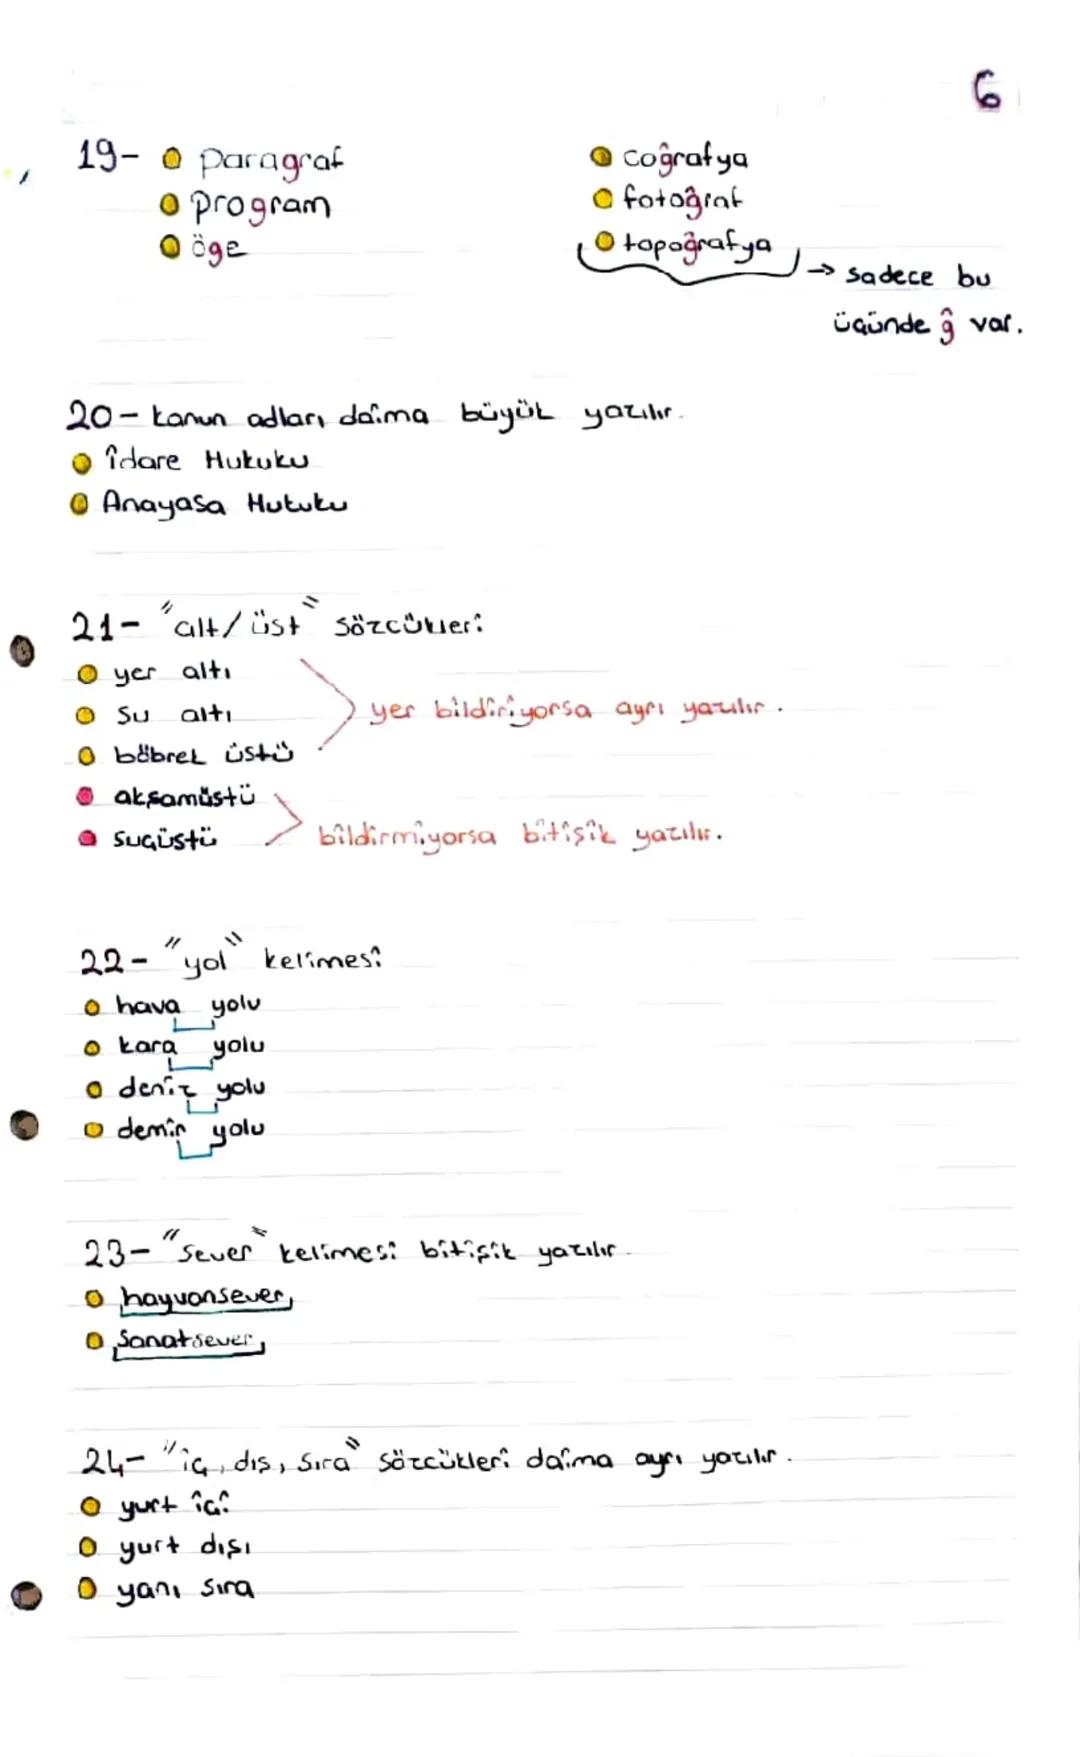 6
19- paragraf
program
öge
coğrafya
fotoğraf
topoğrafya → sadece bu
üçünde ğ var.
20- kanun adları daima büyük yazılır.
İdare Hukuku
Anayasa Hukuku
21- "alt/üst" sözcükleri
yer altı
su altı
yer bildiriyorsa ayrı yazılır.
böbrek üstü
akşamüstü
suçüstü
bildirmiyorsa bitişik yazılır.
22- "yol" kelimesi
hava yolu
kara yolu
deniz yolu
demir yolu
23- "sever" kelimesi bitişik yazılır.
hayvansever
sanatsever
24- "iç, dış, sıra" sözcükleri daima ayrı yazılır.
yurt içi
yurt dışı
yanı sıra